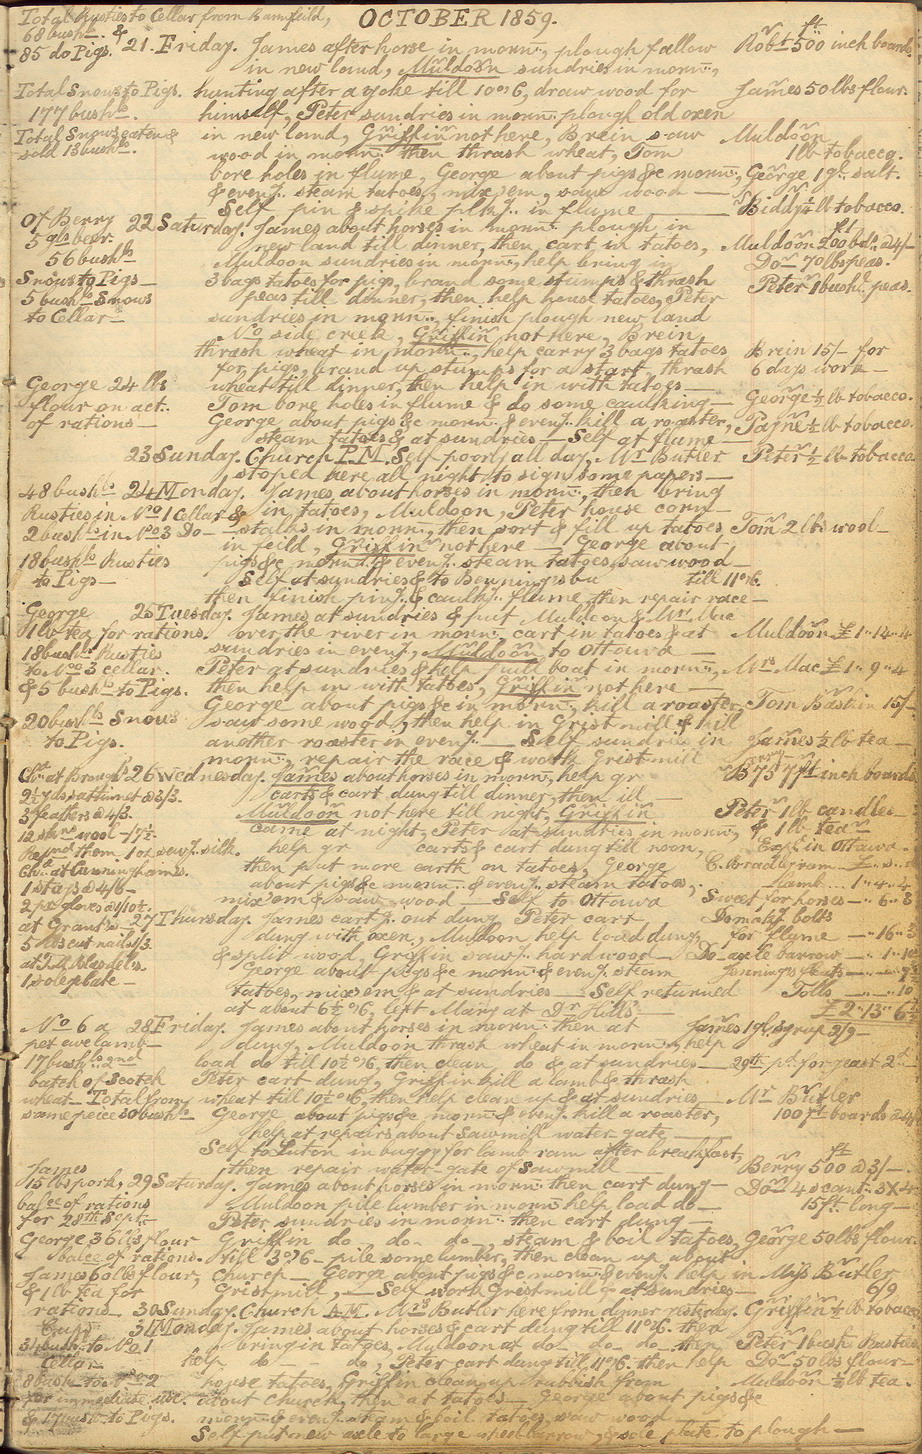 OCTOBER 1859.
Total Rusties to Cellar from Barnfeild,
68 bush.. &
85 do Pigs. 21 Friday. James after horse in morn.., plough fallow
in new land, Muldoon sundries in morn..,
Robt. 500 ft inch boards
Total Snows to Pigs. hunting after a yoke till 10 o'c, draw wood for
James 50 lbs flour.
177 bush.. himself, Peter sundries in morn.. plough old oxen
Total Snows eaten & in new land, Griffin not here, Brein saw
Muldoon
sold 18 bush.. wood in morn.. then thrash wheat, Tom
1 lb tobacco.
bore holes in flume, George about pigs &c morn..,
George 1 gl. salt.
& even.. steam tatoes, mix em, saw wood —
Self pin & spike plk.. in flume —
Biddy ½ lb tobacco.
Of Berry 22 Saturday. James about horses in morn.. plough in
5 gls beer. new land till dinner, then cart in tatoes,
Muldoon 200 ft bds. @ 4/-
56 bush.. Muldoon sundries in morn.., help bring in
Do 70 lbs peas.
Snows to Pigs — 3 bags tatoes for pigs, brand some stumps & thrash
Peter 1 bush. peas.
5 bush.. Snows peas till dinner, then help house tatoes, Peter
to Cellar — sundries in morn.., finish plough new land
No side crick, Griffin not here, Brein,
thrash wheat in morn.., help carry 3 bags tatoes
Brein 15/- for
for pigs, brand up stumps for a start, thrash
6 days work —
George 24 lbs wheat till dinner, then help in with tatoes —
flour on act.. Tom bore holes in flume & do some caulking —
George ½ lb tobacco.
of rations — George about pigs &c morn.. & even.. kill a roaster,
Payne ½ lb tobacco.
steam tatoes & at sundries — Self at flume —
23 Sunday. Church P.M. Self poorly all day. Mr. Butler
Peter ½ lb tobacco
stoped here all night to sign some papers —
48 bush.. 24 Monday. James about horses in morn.., then bring
Rusties in No 1 Cellar & in tatoes, Muldoon, Peter house corn
2 bush.. in No 3 Do — stalks in morn.., then sort & fill up tatoes
Tom 2 lbs wool —
in feild, Griffin not here — George about
18 bush.. Rusties pigs &c morn.. & even.. steam tatoes, saw wood —
to Pigs — Self at sundries & to Benning's bu till 11 o'c.
then finish pin.. & caulk.. flume, then repair race —
George 25 Tuesday. James at sundries & put Muldoon & Mrs. Mac
1 lb tea for rations. over the river in morn.., cart in tatoes & at
Muldoon £1..14..4
18 bush.. Rusties sundries in even.., Muldoon to Ottawa —
to No 3 cellar. Peter at sundries & help haul boat in morn..,
Mrs. Mac £1..9..4
& 5 bush.. to Pigs. then help in with tatoes, Griffin not here —
George about pigs &c in morn.., kill a roaster,
Tom Baskin 15/-
20 bush.. Snows saw some wood, then help in Grist mill & kill
to Pigs. another roaster in even.. — Self sundries in
James ½ lb tea —
morn.., repair the race & work Grist mill
26 Wednesday. James about horses in morn.., help gr
B 75 ft inch boards
2½ yds sattinet @ 3/3. carts & cart dung till dinner, then ill —
3 feathers @ 4/3. Muldoon not here till night, Griffin
Peter 1 lb candles —
12 skns. wool — /7½. came at night, Peter at sundries in morn..,
& 1 lb tea —
help gr carts & cart dung till noon,
Exp. in Ottawa
Ch. at Cunninghams. then put more earth on tatoes, George
C. Bradley ram £
1 stap @ 4/6 — about pigs &c morn.. & even.. steam tatoes,
lamb ... 1..4..4
2 prs gloves @ 1/10½. mix em & saw wood — Self to Ottawa
Sweet for horses — 6..3
at Grants — 27 Thursday. James cart.. out dung, Peter cart
Do making bolts
5 lbs cut nails /3. dung with oxen, Muldoon help load dung,
for flume — 16..3
at T.M. Blasdel's. & split wood, Griffin saw.. hardwood —
Do axle barrow — 1..10
1 sole plate — George about pigs &c morn.. & even.. steam
tatoes, mix em & at sundries — Self returned
Tolls —
at about 6½ o'c, left Mary at Dr. Hill's —
£2..13..6½
No 6 a 28 Friday. James about horses in morn.. then at
James 1 gl. syrup 2/9 —
pet ewe lamb — dung, Muldoon thrash wheat in morn.., help
17 bush.. 2nd load do till 10½ o'c, then clean do & at sundries —
batch of Scotch Peter cart dung, Griffin kill a lamb & thrash
wheat — Total from wheat till 10½ o'c, then help clean up & at sundries —
Mr. Butler
same peice 30 bush.. George about pigs &c morn.. & even.. kill a roaster,
100 ft boards @ 4/-
help at repairs about Sawmill water-gate —
Self to Luton in buggy for lamb ram after breakfast,
James then repair water-gate of Sawmill —
Berry 500 ft @ 3/-.
15 lbs pork, 29 Saturday. James about horses in morn.. then cart dung —
Do 4 scant.. 3 X 4
balce of rations Muldoon pile lumber in morn.. help load do —
15 ft.. long —
for 28th Sept. — Peter sundries in morn.. then cart dung —
George 36 lbs flour Griffin do do do, steam & boil tatoes,
George 50 lbs flour.
balce of rations. till 3 o'c — pile some lumber, then clean up about
James 60 lbs flour, Church — George about pigs &c morn.. & even.. help in
Miss Butler
& 1 lb tea for Gristmill, — Self work Gristmill & at sundries —
6/9
rations — 30 Sunday. Church A.M. Mrs. Butler here from dinner yesterday.
Griffin ½ lb tobacco
31 Monday. James about horses & cart dung till 11 o'c. then
31 bush.. to No 1 bring in tatoes, Muldoon at do do do, then
Peter 1 bush. Rusties
Cellar help do do, Peter cart dung till 11 o'c. then help
Do 50 lbs flour —
8 bush.. to No 2 house tatoes, Griffin clean up rubbish from
Muldoon ½ lb tea.
for immediate use. about Church, then at tatoes — George about pigs &c
& 17 bush.. to Pigs. morn.. & even.. steam & boil tatoes, saw wood —
Self put new axle to large wheelbarrow, & sole plate to plough —